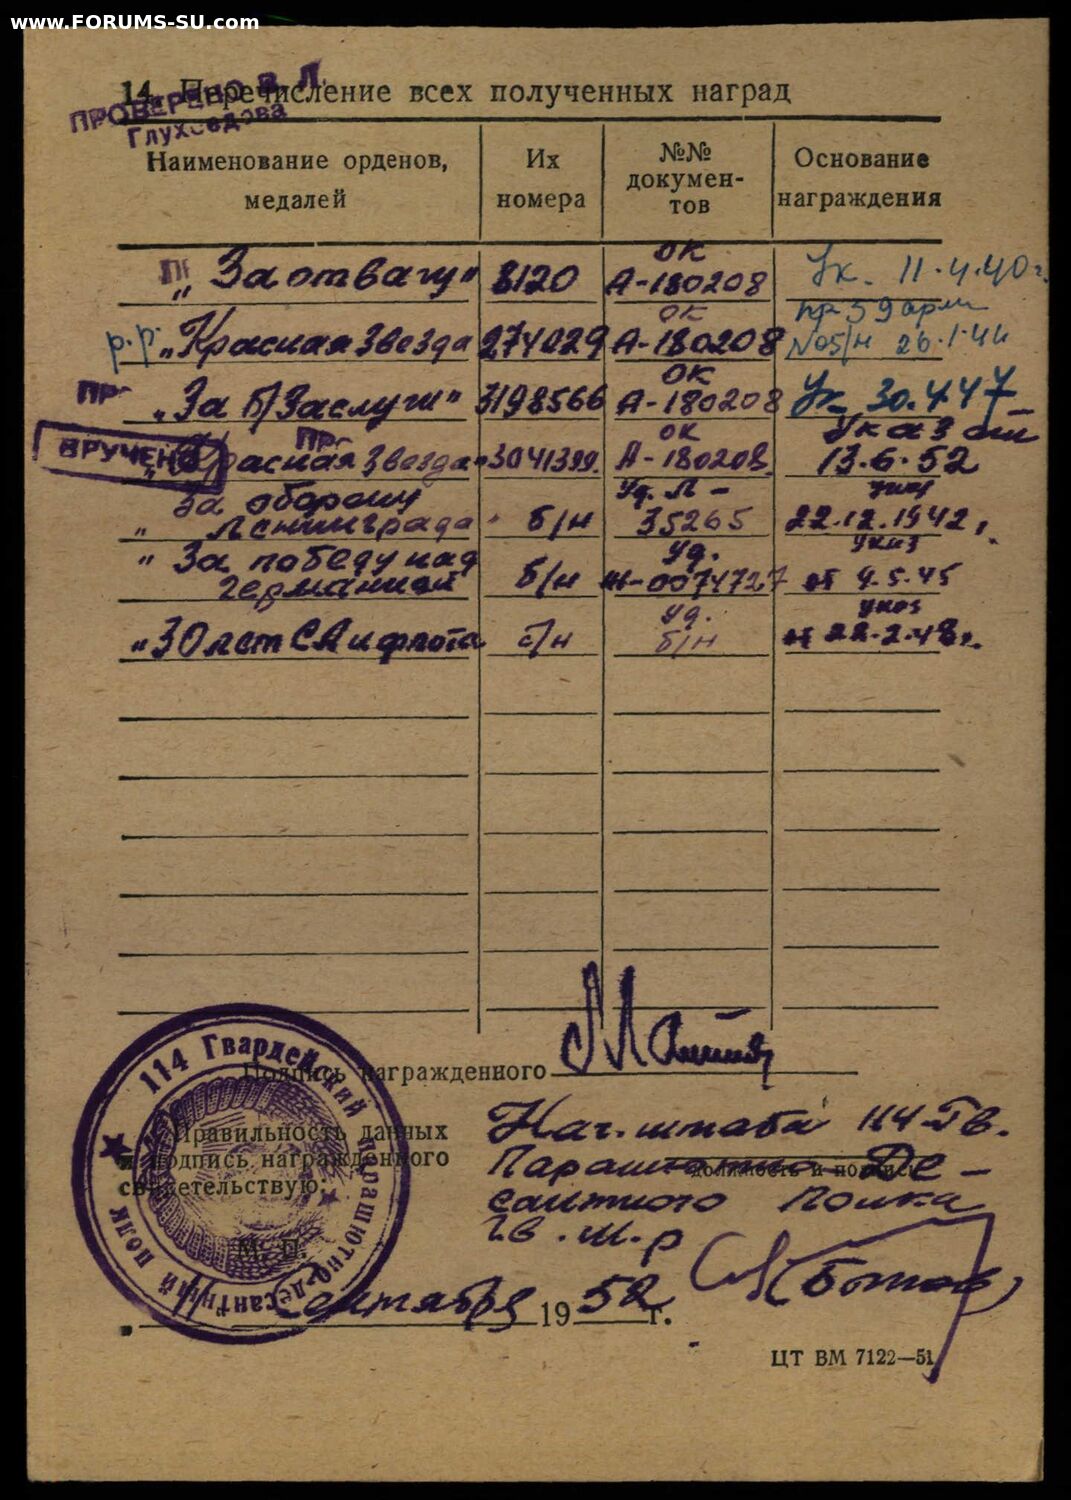 www.FORUMS-SU.com
14. Перечисление всех полученных наград
ПРОВЕРЕНО В. Л.
Глухоедова
Наименование орденов, медалей
Их номера
№№ докумен-тов
Основание награждения
„За отвагу" 8120 ОК А-180208 Ук. 11.4.40г.
р.р. „Красная Звезда 274029 ОК А-180208 пр 59 арм №05/н 26.1.44
„За б/заслуги" 3198566 ОК А-180208 Ук 30.4.47
ВРУЧЕНО
„Красная Звезда" 3041399. ОК А-180208. Указ от 13.6.52
За оборону
„ Ленинграда" б/н Уд. Л- 35265 указ 22.12.1942г.
„За победу над
германией б/н Уд. Ж-0074727 указ от 9.5.45
„30 лет СА и флота б/н Уд. б/н указ от 22.2.48г.
Подпись награжденного
Правильность данных
и подпись награжденного
свидетельствую:
М. П.
114 Гвардейский парашютно-десантный полк
Нач. штаба 114 Гв.
Парашютно Де-
должность и подпись
сантного Полка
Гв. м-р
(Ботов)
11 Сентября 1952 г.
ЦТ ВМ 7122—51